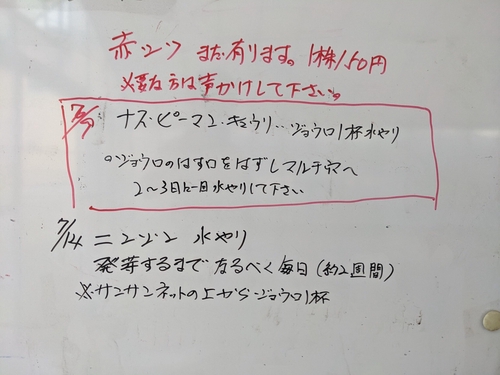 赤シソ まだ有ります。1株150円
必要な方は声かけして下さい。
ナス・ピーマン・キュウリ・・ジョウロ1杯水やり
○ジョウロのはす口をはずしマルチ穴へ
2～3日に一回水やりして下さい
7/14 ニンジン 水やり
発芽するまで なるべく毎日(約2週間)
※サンサンネットの上からジョウロ1杯